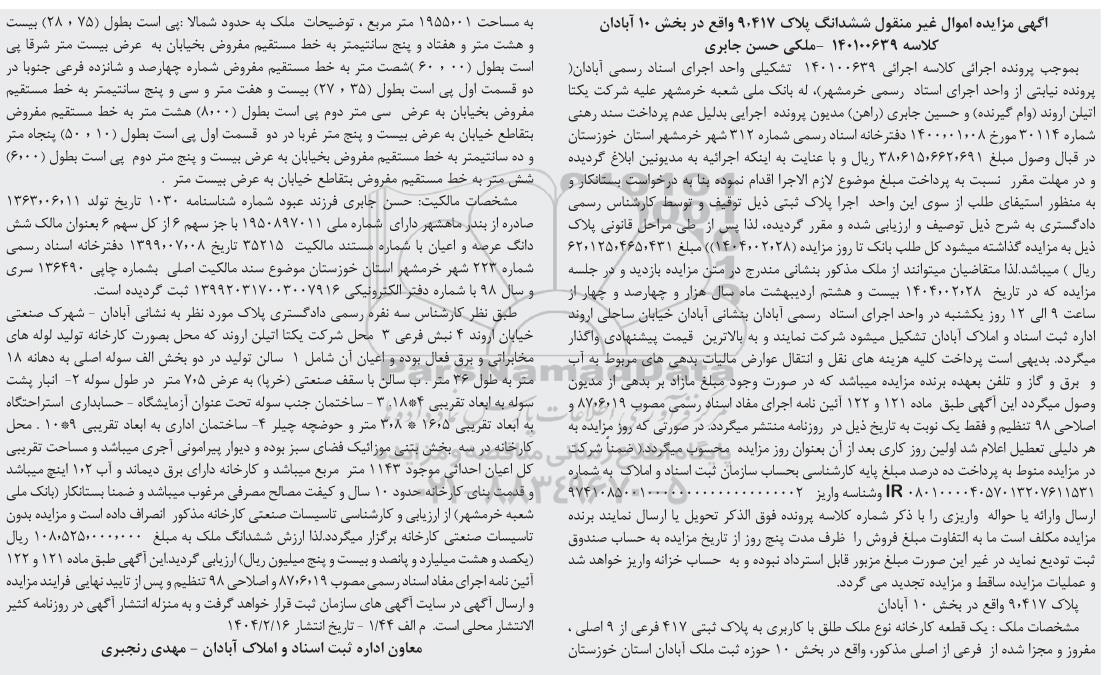 آگهی مزایده اموال غیر منقول ششدانگ پلاک ۹،۴۱۷ واقع در بخش ۱۰ آبادان
کلاسه ۱۴۰۱۰۰۶۳۹ -ملکی حسن جابری
بموجب پرونده اجرائی کلاسه اجرائی ۱۴۰۱۰۰۶۳۹ تشکیلی واحد اجرای اسناد رسمی آبادان(
پرونده نیابتی از واحد اجرای استاد رسمی خرمشهر)، له بانک ملی شعبه خرمشهر علیه شرکت یکتا
اتیلن اروند (وام گیرنده) و حسین جابری (راهن) مدیون پرونده اجرایی بدلیل عدم پرداخت سند رهنی
شماره ۳۰۱۱۴ مورخ ۱۴۰۰،۰۱،۰۸ دفترخانه اسناد رسمی شماره ۳۱۲ شهر خرمشهر استان خوزستان
در قبال وصول مبلغ ۳۸،۶۱۵،۶۶۲،۶۹۱ ریال و با عنایت به اینکه اجرائیه به مدیونین ابلاغ گردیده
و در مهلت مقرر نسبت به پرداخت مبلغ موضوع لازم الاجرا اقدام نموده بنا به درخواست بستانکار و
به منظور استیفای طلب از سوی این واحد اجرا پلاک ثبتی ذیل توقیف و توسط کارشناس رسمی
دادگستری به شرح ذیل توصیف و ارزیابی شده و مقرر گردیده، لذا پس از طی مراحل قانونی پلاک
ذیل به مزایده گذاشته میشود کل طلب بانک تا روز مزایده (۱۴۰۴،۰۲،۲۸)) مبلغ ۶۲،۱۲۵،۴۶۵،۴۳۱
ریال ) میباشد.لذا متقاضیان میتوانند از ملک مذکور بنشانی مندرج در متن مزایده بازدید و در جلسه
مزایده که در تاریخ ۱۴۰۴،۰۲،۲۸ بیست و هشتم اردیبهشت ماه سال هزار و چهارصد و چهار از
ساعت ۹ الی ۱۲ روز یکشنبه در واحد اجرای استاد رسمی آبادان بنشانی آبادان خیابان ساحلی اروند
اداره ثبت اسناد و املاک آبادان تشکیل میشود شرکت نمایند و به بالاترین قیمت پیشنهادی واگذار
میگردد. بدیهی است پرداخت کلیه هزینه های نقل و انتقال عوارض مالیات بدهی های مربوط به آب
و برق و گاز و تلفن بعهده برنده مزایده میباشد که در صورت وجود مبلغ مازاد بر بدهی از مدیون
وصول میگردد این آگهی طبق ماده ۱۲۱ و ۱۲۲ آئین نامه اجرای مفاد اسناد رسمی مصوب ۸۷،۰۶،۱۹ و
اصلاحی ۹۸ تنظیم و فقط یک نوبت به تاریخ ذیل در روزنامه منتشر میگردد. در صورتی که روز مزایده به
هر دلیلی تعطیل اعلام شد اولین روز کاری بعد از آن بعنوان روز مزایده محسوب میگردد. ضمناً شرکت
در مزایده منوط به پرداخت ده درصد مبلغ پایه کارشناسی بحساب سازمان ثبت اسناد و املاک به شماره
IR ۰۸۰۱۰۰۰۰۴۰۵۷۰۱۳۲۰۷۶۱۱۵۳۱ وشناسه واریز
ارسال وارائه یا حواله واریزی را با ذکر شماره کلاسه پرونده فوق الذکر تحویل یا ارسال نمایند برنده
مزایده مکلف است ما به التفاوت مبلغ فروش را ظرف مدت پنج روز از تاریخ مزایده به حساب صندوق
ثبت تودیع نماید در غیر این صورت مبلغ مزبور قابل استرداد نبوده و به حساب خزانه واریز خواهد شد
و عملیات مزایده ساقط و مزایده تجدید می گردد.
پلاک ۹،۴۱۷ واقع در بخش ۱۰ آبادان
مشخصات ملک : یک قطعه کارخانه نوع ملک طلق با کاربری به پلاک ثبتی ۴۱۷ فرعی از ۹ اصلی ،
مفروز و مجزا شده از فرعی از اصلی مذکور، واقع در بخش ۱۰ حوزه ثبت ملک آبادان استان خوزستان
به مساحت ۱۹۵۵،۰۱ متر مربع ، توضیحات ملک به حدود شمالا :پی است بطول (۷۵ ، ۲۸) بیست
و هشت متر و هفتاد و پنج سانتیمتر به خط مستقیم مفروض بخیابان به عرض بیست متر شرقا پی
است بطول (۰۰ ، ۶۰ )شصت متر به خط مستقیم مفروض شماره چهارصد و شانزده فرعی جنوبا در
دو قسمت اول پی است بطول (۳۵ ، ۲۷) بیست و هفت متر و سی و پنج سانتیمتر به خط مستقیم
مفروض بخیابان به عرض سی متر دوم پی است بطول (۸،۰۰) هشت متر به خط مستقیم مفروض
بتقاطع خیابان به عرض بیست و پنج متر غربا در دو قسمت اول پی است بطول (۱۰ ، ۵۰) پنجاه متر
و ده سانتیمتر به خط مستقیم مفروض بخیابان به عرض بیست و پنج متر دوم پی است بطول (۶،۰۰)
شش متر به خط مستقیم مفروض بتقاطع خیابان به عرض بیست متر .
مشخصات مالکیت: حسن جابری فرزند عبود شماره شناسنامه ۱۰۳۰ تاریخ تولد ۱۳۶۳،۰۰۶،۱۱
صادره از بندر ماهشهر دارای شماره ملی ۱۹۵۰۸۹۷۰۱۱ با جز سهم ۶ از کل سهم ۶ بعنوان مالک شش
دانگ عرصه و اعیان با شماره مستند مالکیت ۳۵۲۱۵ تاریخ ۱۳۹۹،۰۷،۰۸ دفترخانه اسناد رسمی
شماره ۲۲۳ شهر خرمشهر استان خوزستان موضوع سند مالکیت اصلی بشماره چاپی ۱۳۶۴۹۰ سری
و سال ۹۸ با شماره دفتر الکترونیکی ۱۳۹۹۲۰۳۱۷۰۰۳۰۰۷۹۱۶ ثبت گردیده است.
طبق نظر کارشناس سه نفره رسمی دادگستری پلاک مورد نظر به نشانی آبادان - شهرک صنعتی
خیابان اروند ۴ نبش فرعی ۳ محل شرکت یکتا اتیلن اروند که محل بصورت کارخانه تولید لوله های
مخابراتی و برق فعال بوده و اعیان آن شامل ۱ سالن تولید در دو بخش الف سوله اصلی به دهانه ۱۸
متر به طول ۴۶ متر . ب سالن با سقف صنعتی (خرپا) به عرض ۷،۵ متر در طول سوله ۲- انبار پشت
سوله به ابعاد تقریبی ۴*۱۸، ۳ - ساختمان جنب سوله تحت عنوان آزمایشگاه - حسابداری استراحتگاه
به ابعاد تقریبی ۱۶،۵ * ۳،۸ متر و حوضچه چیلر ۴- ساختمان اداری به ابعاد تقریبی ۹*۱۰ . محل
کارخانه در سه بخش بتنی موزائیک فضای سبز بوده و دیوار پیرامونی آجری میباشد و مساحت تقریبی
کل اعیان احداثی موجود ۱۱۴۳ متر مربع میباشد و کارخانه دارای برق دیماند و آب ۱،۲ اینچ میباشد
و قدمت بنای کارخانه حدود ۱۰ سال و کیفت مصالح مصرفی مرغوب میباشد و ضمنا بستانکار (بانک ملی
شعبه خرمشهر) از ارزیابی و کارشناسی تاسیسات صنعتی کارخانه مذکور انصراف داده است و مزایده بدون
تاسیسات صنعتی کارخانه برگزار میگردد.لذا ارزش ششدانگ ملک به مبلغ ۱۰۸،۵۲۵،۰۰۰،۰۰۰ ریال
(یکصد و هشت میلیارد و پانصد و بیست و پنج میلیون ریال) ارزیابی گردید.این آگهی طبق ماده ۱۲۱ و ۱۲۲
آئین نامه اجرای مفاد اسناد رسمی مصوب ۸۷،۰۶،۱۹ و اصلاحی ۹۸ تنظیم و پس از تایید نهایی فرایند مزایده
و ارسال آگهی در سایت آگهی های سازمان ثبت قرار خواهد گرفت و به منزله انتشار آگهی در روزنامه کثیر
الانتشار محلی است. م الف ۱/۴۴ - تاریخ انتشار ۱۴۰۴/۲/۱۶
معاون اداره ثبت اسناد و املاک آبادان - مهدی رنجبری
ParsNamadData